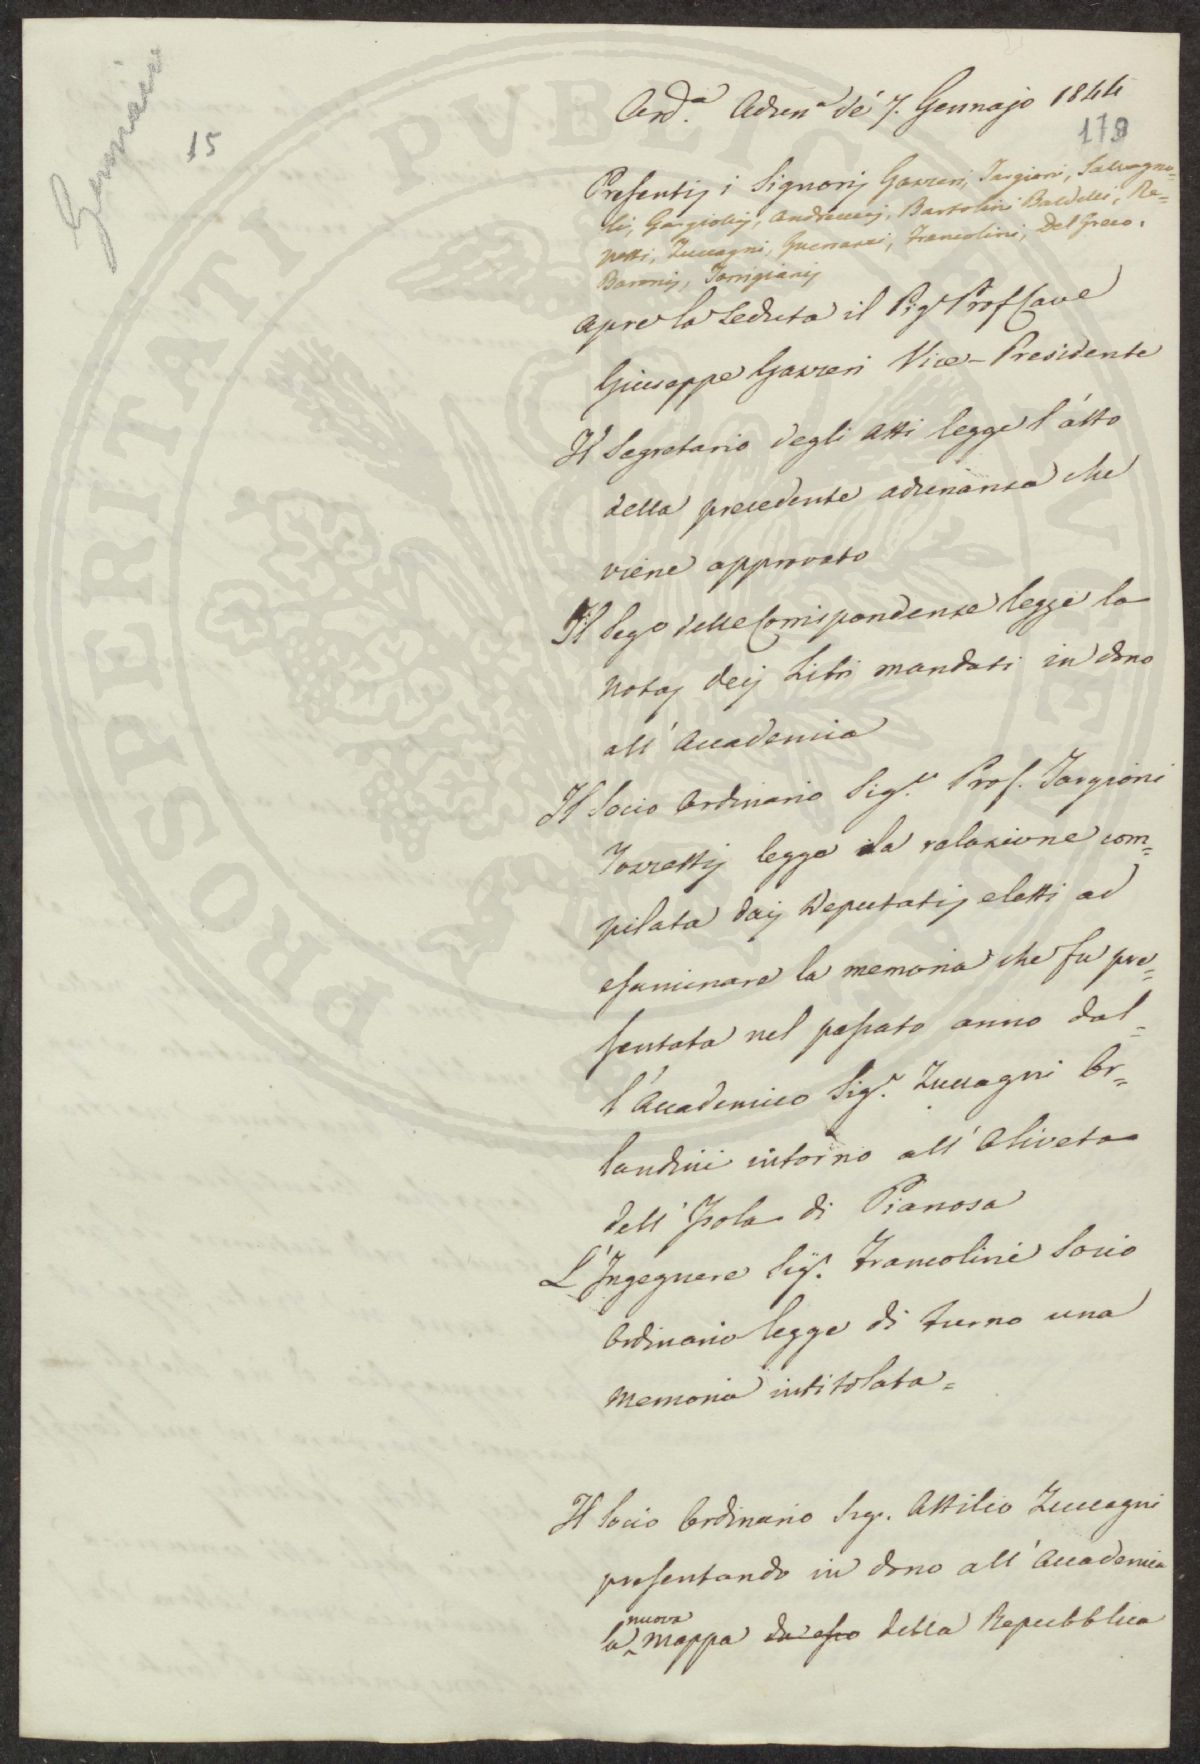 Gennaio
15
Ord.ª Adun.ª de' 7. Gennajo 1844
179
Presentij i Signorij Gazzeri, Targioni, Salvagno=
li, Gargiollij, Andreucij, Bartolini Baldelli, Re=
petti, Zuccagni, Guerrazzi, Francolini, Del Greco,
Baronij, Torrigianij
Apre la Seduta il Sig.r Prof Cave
Giuseppe Gazzeri Vice-Presidente
Il Segretario degli Atti legge l'atto
della precedente adunanza che
viene approvato
Il Sego delle Corrispondenze legge la
nota deij Libri mandati in dono
all'Accademia
Il Socio Ordinario Sig.r Prof. Targioni
Tozzettij legge la relazione com=
pilata daij Deputatij eletti ad
esaminare la memoria che fu pre=
sentata nel passato anno dal=
l'Accademico Sig.r Zuccagni Or=
landini intorno all'Oliveto
dell'Isola di Pianosa
L'Ingegnere Sig.r Francolini Socio
Ordinario legge di turno una
Memoria intitolata=
Il Socio Ordinario Sig. Attilio Zuccagni
presentando in dono all'Accademia
la nuova Mappa da esso della Repubblica
PROSPERITATI PUBLICAE